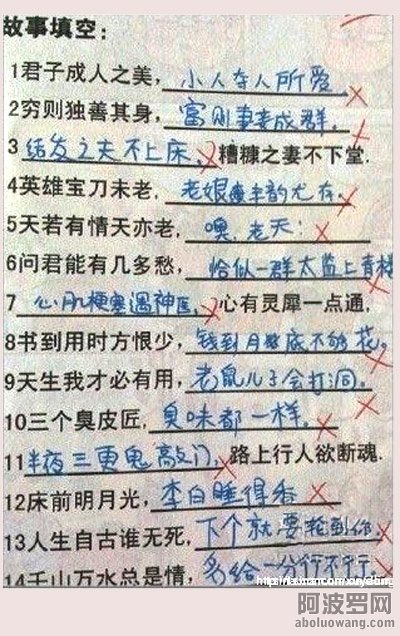 故事填空:
1君子成人之美,小人夺人所爱
2穷则独善其身,富则妻妾成群。
3结发之夫不上床,糟糠之妻不下堂.
4英雄宝刀未老,老娘丰韵尤存。
5天若有情天亦老,噢,老天!
6问君能有几多愁,恰似一群太监上青楼
7心肌梗塞遇神医,心有灵犀一点通,
8书到用时方恨少,钱到月底不够花。
9天生我才必有用,老鼠儿子会打洞。
10三个臭皮匠,臭味都一样。
11半夜三更鬼敲门,路上行人欲断魂.
12床前明月光,李白睡得香
13人生自古谁无死,下个就要轮到你.
14千山万水总是情,多给一分行不行。
阿波罗网
aboluowang.com